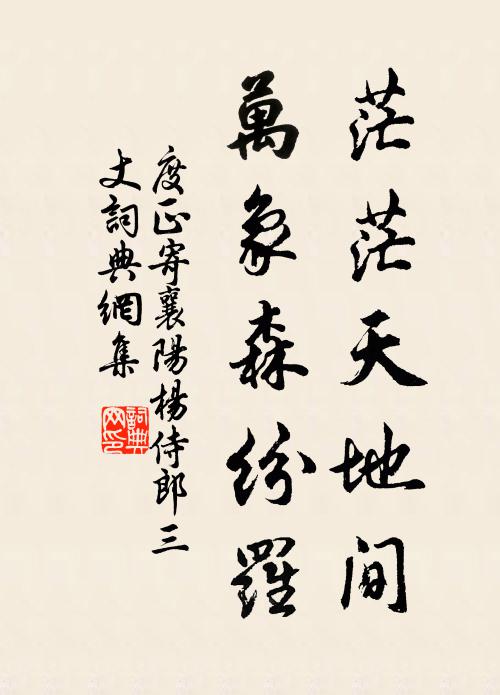 茫茫天地間
萬象森紛羅
度正寄襄陽楊侍郎三
丈詞典網集
詞典
网印